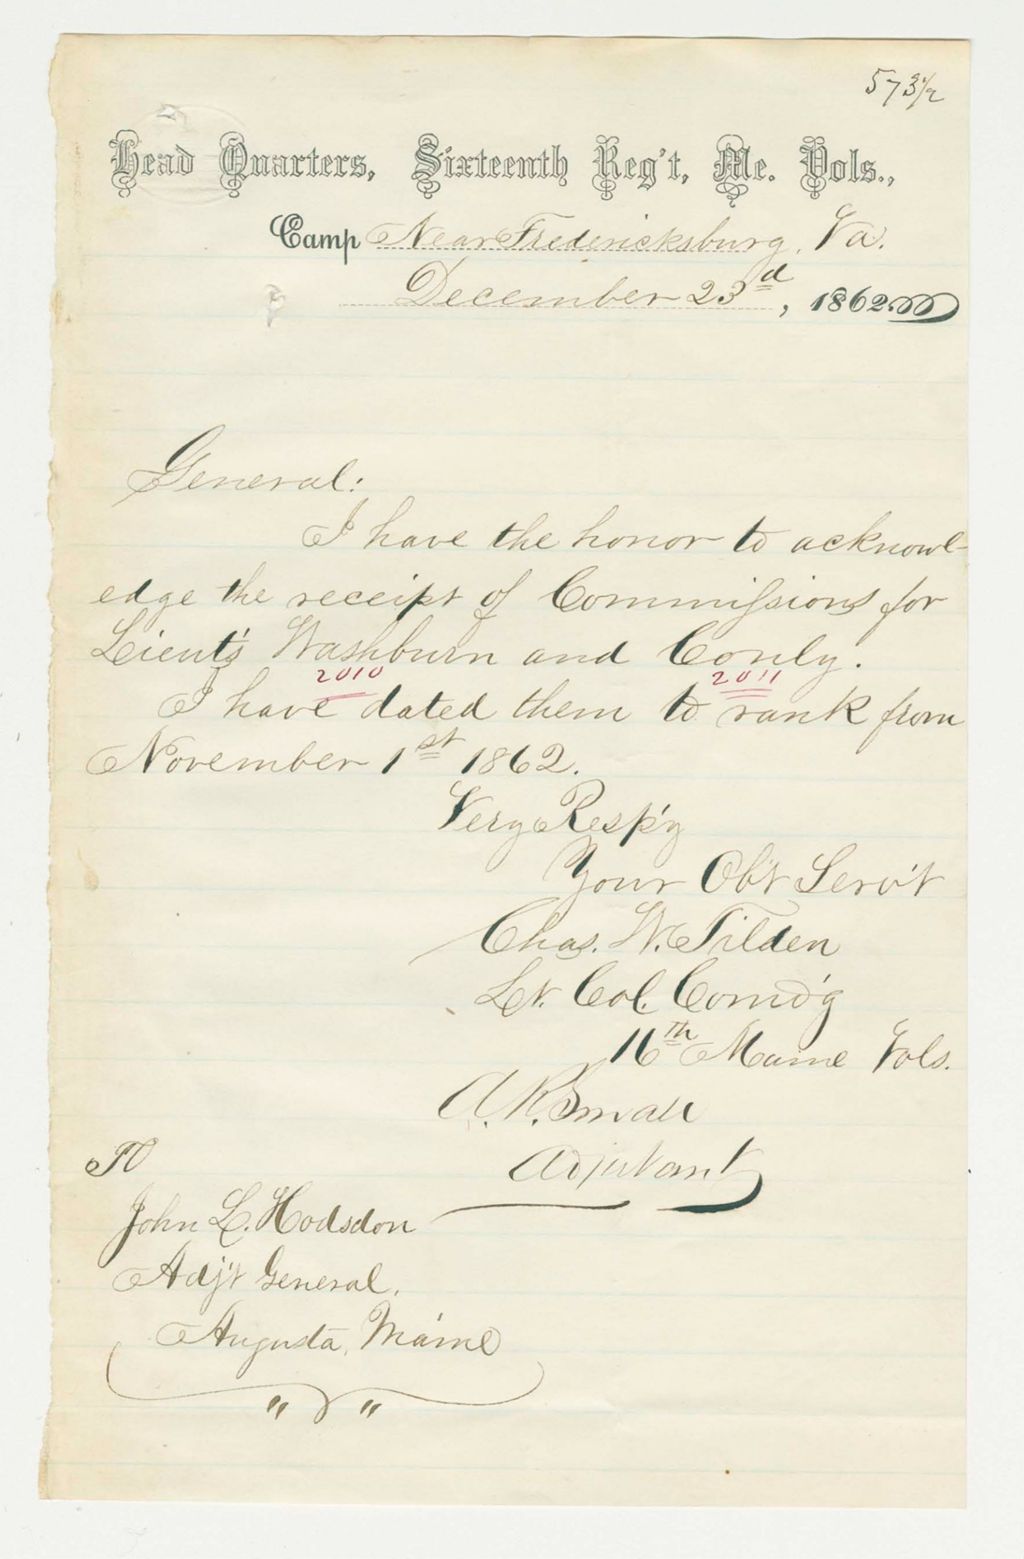 573 1/2
Head Quarters, Sixteenth Reg't, Me. Vols.,
Camp Near Fredericksburg, Va.
December 23d, 1862.
General:
I have the honor to acknowl-
edge the receipt of Commissions for
Lieut's Washburn and Conly.
2010 2011
I have dated them to rank from
November 1st 1862.
Very Resp'y
Your Ob't Serv't
Chas. W. Tilden
Lt. Col. Comd'g
16th Maine Vols.
A. R. Small
Adjutant
To
John L. Hodsdon
Adj't General.
Augusta, Maine
" "